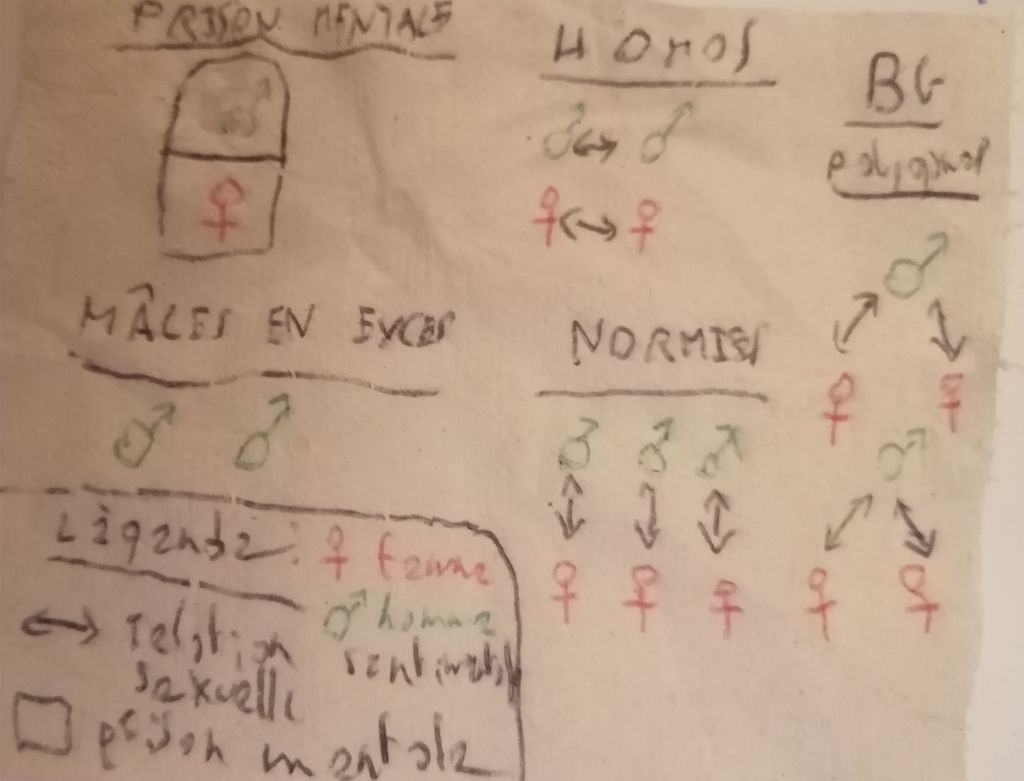 PRISON MENTALE
HOMOS
BG
polygame
MÂLES EN EXCES
NORMIES
Légende: ♀ femme
♂ homme
↔ relation sentimentale
sexuelle
prison mentale